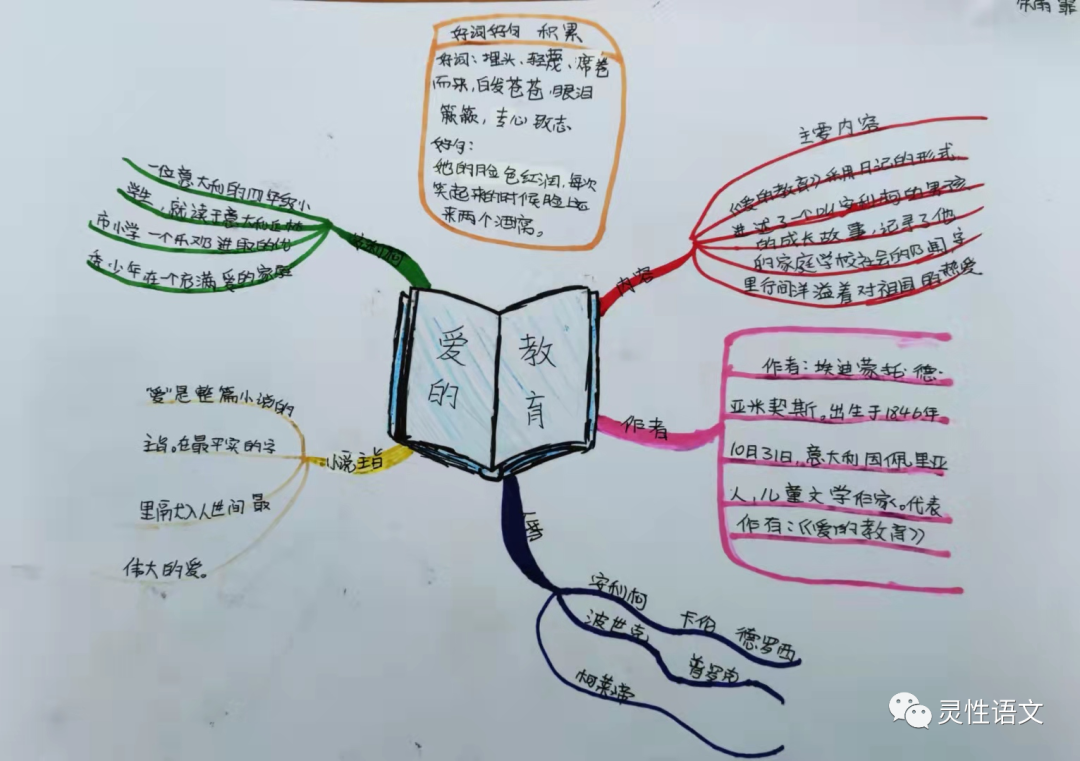 朱雨霏
好词好句 积累
好词：埋头、轻蔑、席卷
而来，白发苍苍，眼泪
簌簌，专心致志
好句：
她的脸色红润，每次
笑起来的时候脸上起
来两个酒窝。
主要内容
《爱的教育》采用日记的形式
讲述了一个叫安利柯的男孩
的成长故事，记录了他
的家庭学校社会的
里行间洋溢着对祖国的热爱
内容
一位意大利的四年级小
学生，就读于意大利
市小学 一个乐观进取的优
秀少年在一个充满爱的家庭
安利柯
爱的
教育
作者
作者：埃迪蒙托·德·
亚米契斯。出生于1846年
10月31日，意大利因佩里亚
人，儿童文学作家。代表
作有：《爱的教育》
小说主旨
"爱"是整篇小说的
主旨。在最平实的字
里融入人世间最
伟大的爱。
安利柯 卡伯 德罗西
波世克 普罗弗
柯莱蒂
灵性语文